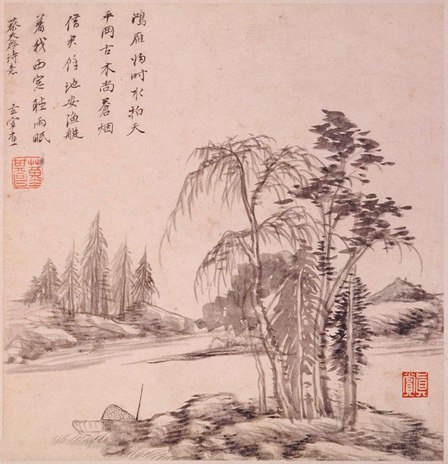 鴻雁歸時水拍天
平岡古木尚蒼烟
借君餘地安漁艇
著我西窓聽雨眠
蔡天啓詩意 玄宰畫
真賞